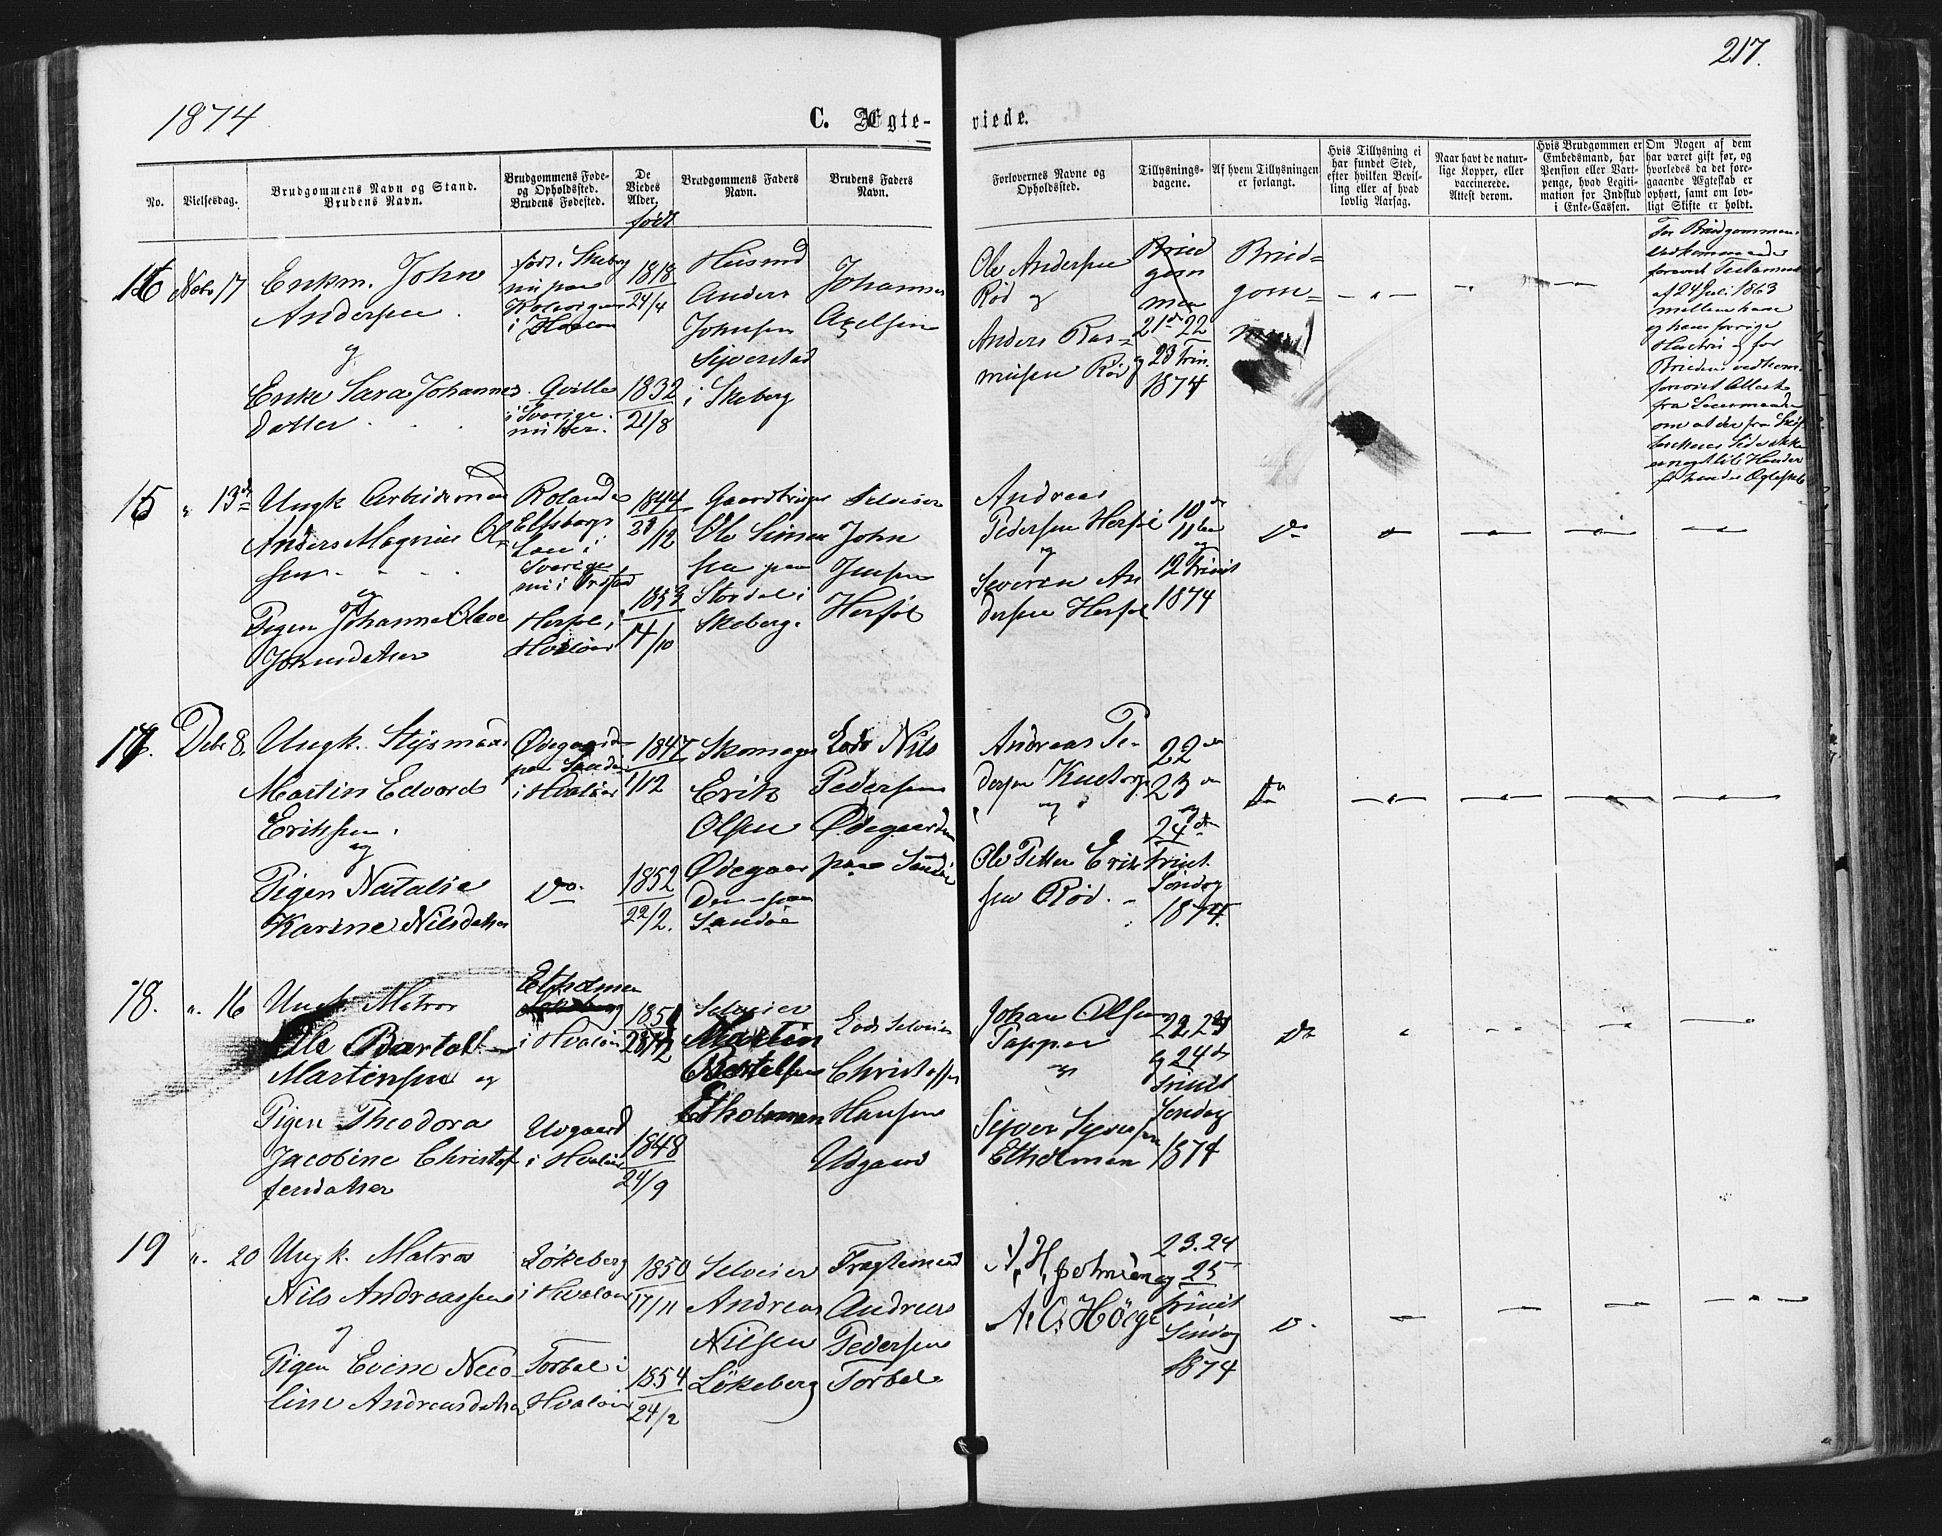 217.
1874
C. Ægte-
viede.
No.
Vielsesdag.
Brudgommens Navn og Stand.
Brudens Navn.
Brudgommens Føde-
og Opholdssted.
Brudens Fødested.
De
Viedes
Alder.
født
Brudgommens Faders
Navn.
Brudens Faders
Navn.
Forlovernes Navne og
Opholdssted.
Tillysnings-
dagene.
Af hvem Tillysningen
er forlangt.
Hvis Tillysning ei
har fundet Sted,
efter hvilken Bevil-
ling eller af hvad
lovlig Aarsag.
Naar havt de natur-
lige Kopper, eller
vaccinerede.
Attest derom.
Hvis Brudgommen er
Embedsmand, har
Pension eller Vart-
penge, hvad Legiti-
mation for Indskud
i Enke-Cassen.
Om Nogen af dem
har været gift før, og
hvorledes da det fore-
gaaende Ægteskab er
ophørt, samt om lov-
ligt Skifte er holdt.
16
Novbr 17
Enkm. John
Andersen
og
Enke Sara Johannes
datter
født i Skeberg
nu paa
i Hvaløer
Qville
i Sverige
nu her.
1818
24/4
1832
21/8
Husmd
Anders
Johnsen
Sijverstad
i Skeberg
Johannes
Axelsen
Ole Andersen
Rød og
Anders Ras-
musen Rød
Brud
gom
men
21de 22
og 23 Trin.
1874
Brud=
gom=
men
For Brudgommens
Vedkommende
forevist Testament
af 24 Juli 1863
mellem ham
og hans forrige
Hustru og for
Bruden vedkom.
forevist Attest
fra
15
" 13de
Ungk Arbeidsmand
Anders Magnus Ol-
sen
og
Pigen Johanne Olava
Johnsdatter
Rolanda
Elfsborgs
Læn i
Sverige
nu i Idd
Herføl i
Hvaløer
1844
23/12
1853
14/10
Gaardbruger
Ole Simen
sen paa
Stordal i
Skeberg.
Selveier
John
Jensen
Herføl
Andreas
Pedersen Herføl
og
Severin An
dersen Herføl
10de
11te
og
12 Trinit
1874
Do
17.
Debr 8.
Ungk. Styrmand
Martin Edvard
Eriksen.
og
Pigen Natalia
Karine Nilsdatter
Ødegaard
paa Sandø
i Hvaløer
Do.
1847
1/12
1852
22/2.
Skomager
Erik
Olsen
Ødegaar
den paa
Sandøe
Lods Nils
Pedersen
Ødegaarden
paa Sandøe
Andreas Pe-
dersen
og
Ole Petter Erik
sen Rød.
22de
23de
og
24de
Trinit.
Søndag
1874.
Do
18.
". 16
Ungk Matros
Ole Bartolt
Martinsen og
Pigen Theodora
Jacobine Christof
fersdatter
Etholmen
i Hvaløer
Urgaard
i Hvaløer
1848
24/9
Selveier
Martin
Bertelsen
Etholmen
Lods Selveier
Christoffer
Hansen
Urgaard
Johan Olsen
Tapper
og
Sijver Sijversen
Etholmen
22 23
og 24de
Trinit
Søndag
1874
Do
19
". 20
Ungk. Matros
Nils Andreassen
og
Pigen Evine Nico-
line Andreasdatter
Løkeberg
i Hvaløer
Torbal i
Hvaløer
1850
17/11
1854
24/2
Selveier
Andreas
Nilsen
Løkeberg
Fragtemand
Andreas
Pedersen
Torbal
23. 24
og 25
Trinit
Søndag
1874
D.